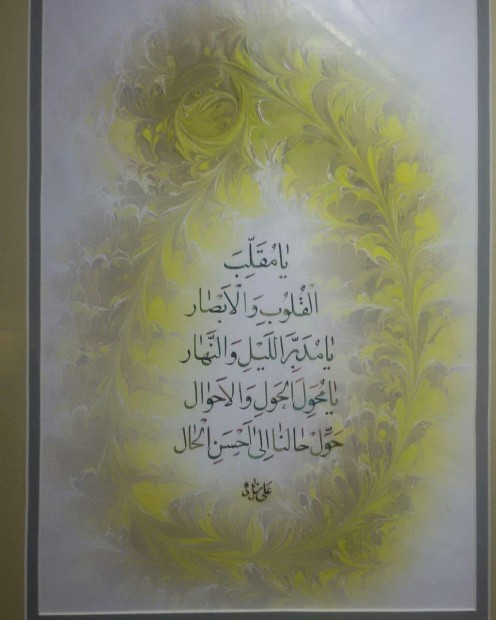 يٰا مُقَلِّبَ
الْقُلُوبِ وَالْاَبْصٰار
يٰا مُدَبِّرَ اللَّيْلِ وَالنَّهٰار
يٰا مُحَوِّلَ الْحَوْلِ وَالْاَحْوٰال
حَوِّلْ حٰالَنٰا اِلىٰ اَحْسَنِ الْحٰال